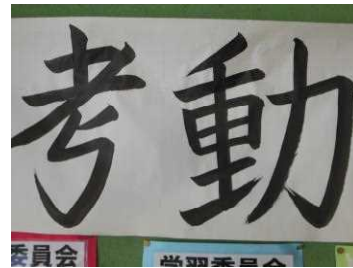 考動
委員会
学習委員会